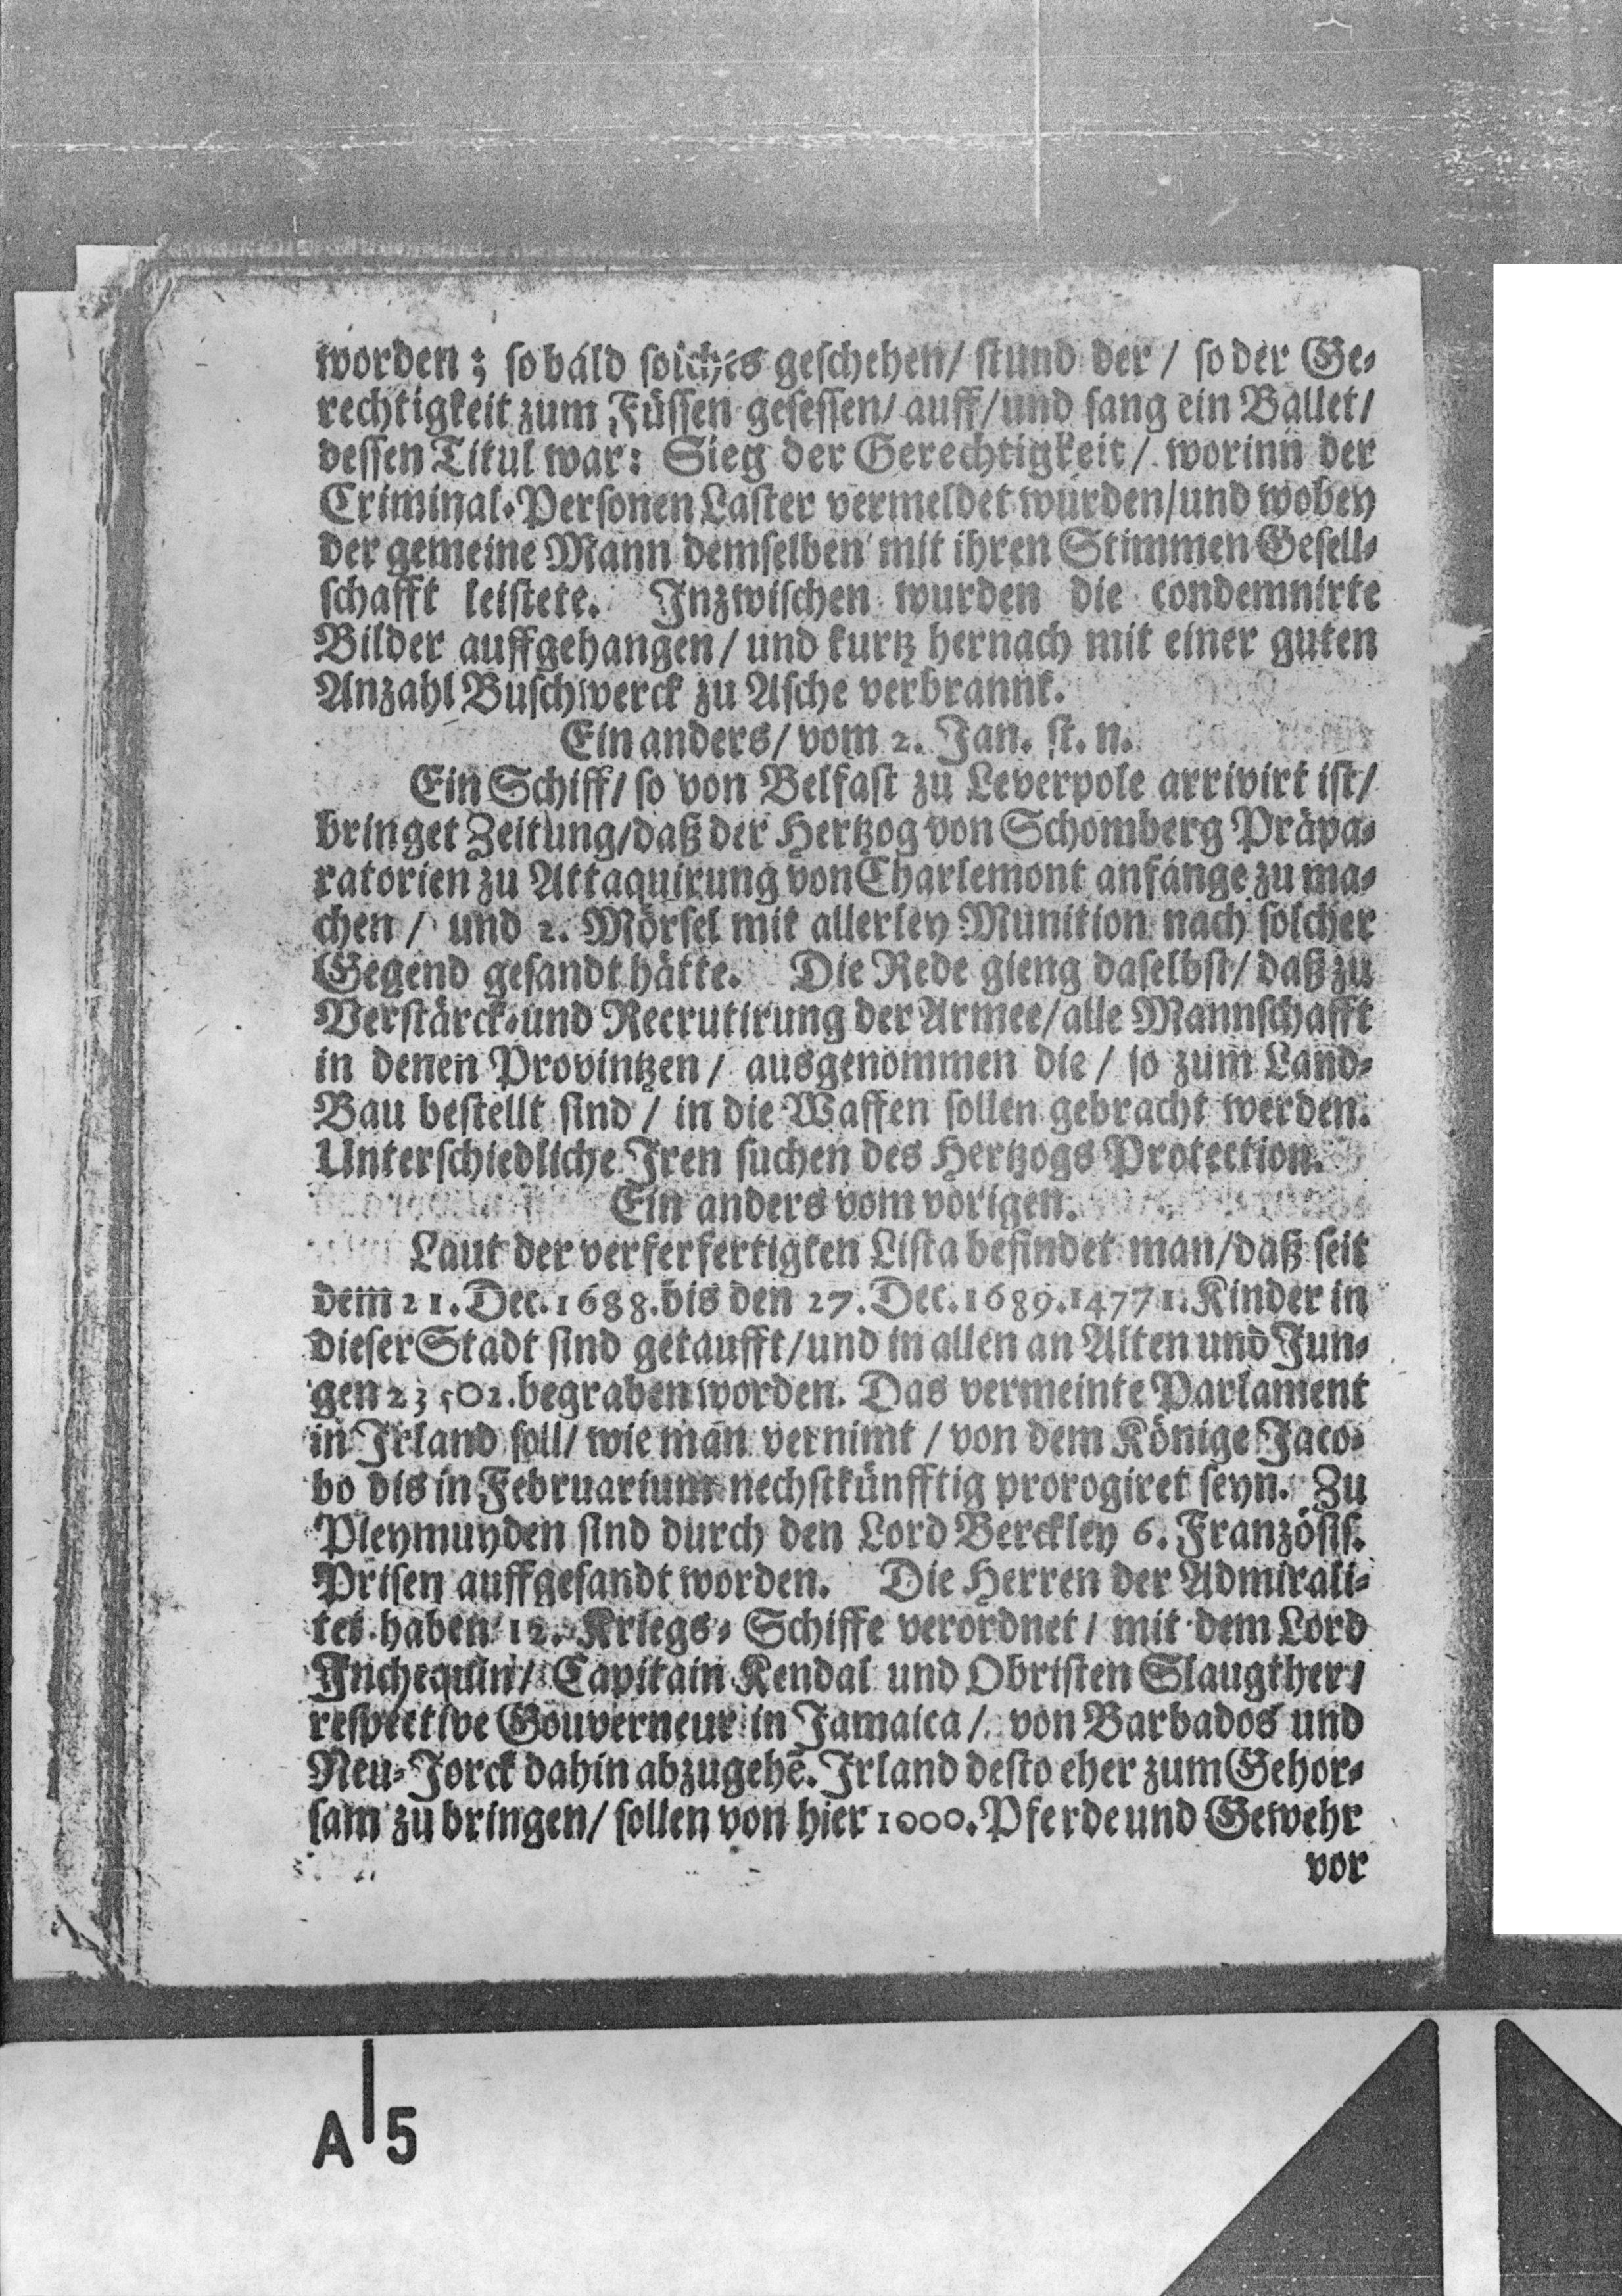 worden; so bald solches geschehen/ stund der / so der Ge-
rechtigkeit zum Füssen gesessen/ auff/ und sang ein Ballet/
dessen Titul war: Sieg der Gerechtigkeit/ worinn der
Criminal-Personen Laster vermeldet wurden/ und wobey
der gemeine Mann demselben mit ihren Stimmen Gesell-
schafft leistete. Inzwischen wurden die condemnirte
Bilder auffgehangen/ und kurtz hernach mit einer guten
Anzahl Buschwerck zu Asche verbrannt.
Ein anders/ vom 2. Jan. st. n.
Ein Schiff/ so von Belfast zu Leverpole arrivirt ist/
bringet Zeitung/ daß der Hertzog von Schomberg Präpa-
ratorien zu Attaquirung von Charlemont anfange zu ma-
chen / und 2. Mörsel mit allerley Munition nach solcher
Gegend gesandt hätte. Die Rede gieng daselbst/ daß zu
Verstärck- und Recrutirung der Armee/ alle Mannschafft
in denen Provintzen / ausgenommen die / so zum Land-
Bau bestellt sind / in die Waffen sollen gebracht werden.
Unterschiedliche Iren suchen des Hertzogs Protection.
Ein anders vom vorigen.
Laut der verferfertigten Lista befindet man/ daß seit
dem 21. Dec. 1688. bis den 27. Dec. 1689. 14771. Kinder in
dieser Stadt sind getaufft/ und in allen an Alten und Jun-
gen 23502. begraben worden. Das vermeinte Parlament
in Irland soll/ wie man vernimt / von dem Könige Jaco-
bo bis in Februarium nechstkünfftig prorogiret seyn. Zu
Pleymuyden sind durch den Lord Berckley 6. Französis.
Prisen auffgesandt worden. Die Herren der Admirali-
tet haben 12. Kriegs-Schiffe verordnet / mit dem Lord
Inchequin/ Capitain Kendal und Obristen Slaugther/
respective Gouverneur in Jamaica / von Barbados und
Neu-Jorck dahin abzugehē. Irland desto eher zum Gehor-
sam zu bringen/ sollen von hier 1000. Pferde und Gewehr
vor
A 5